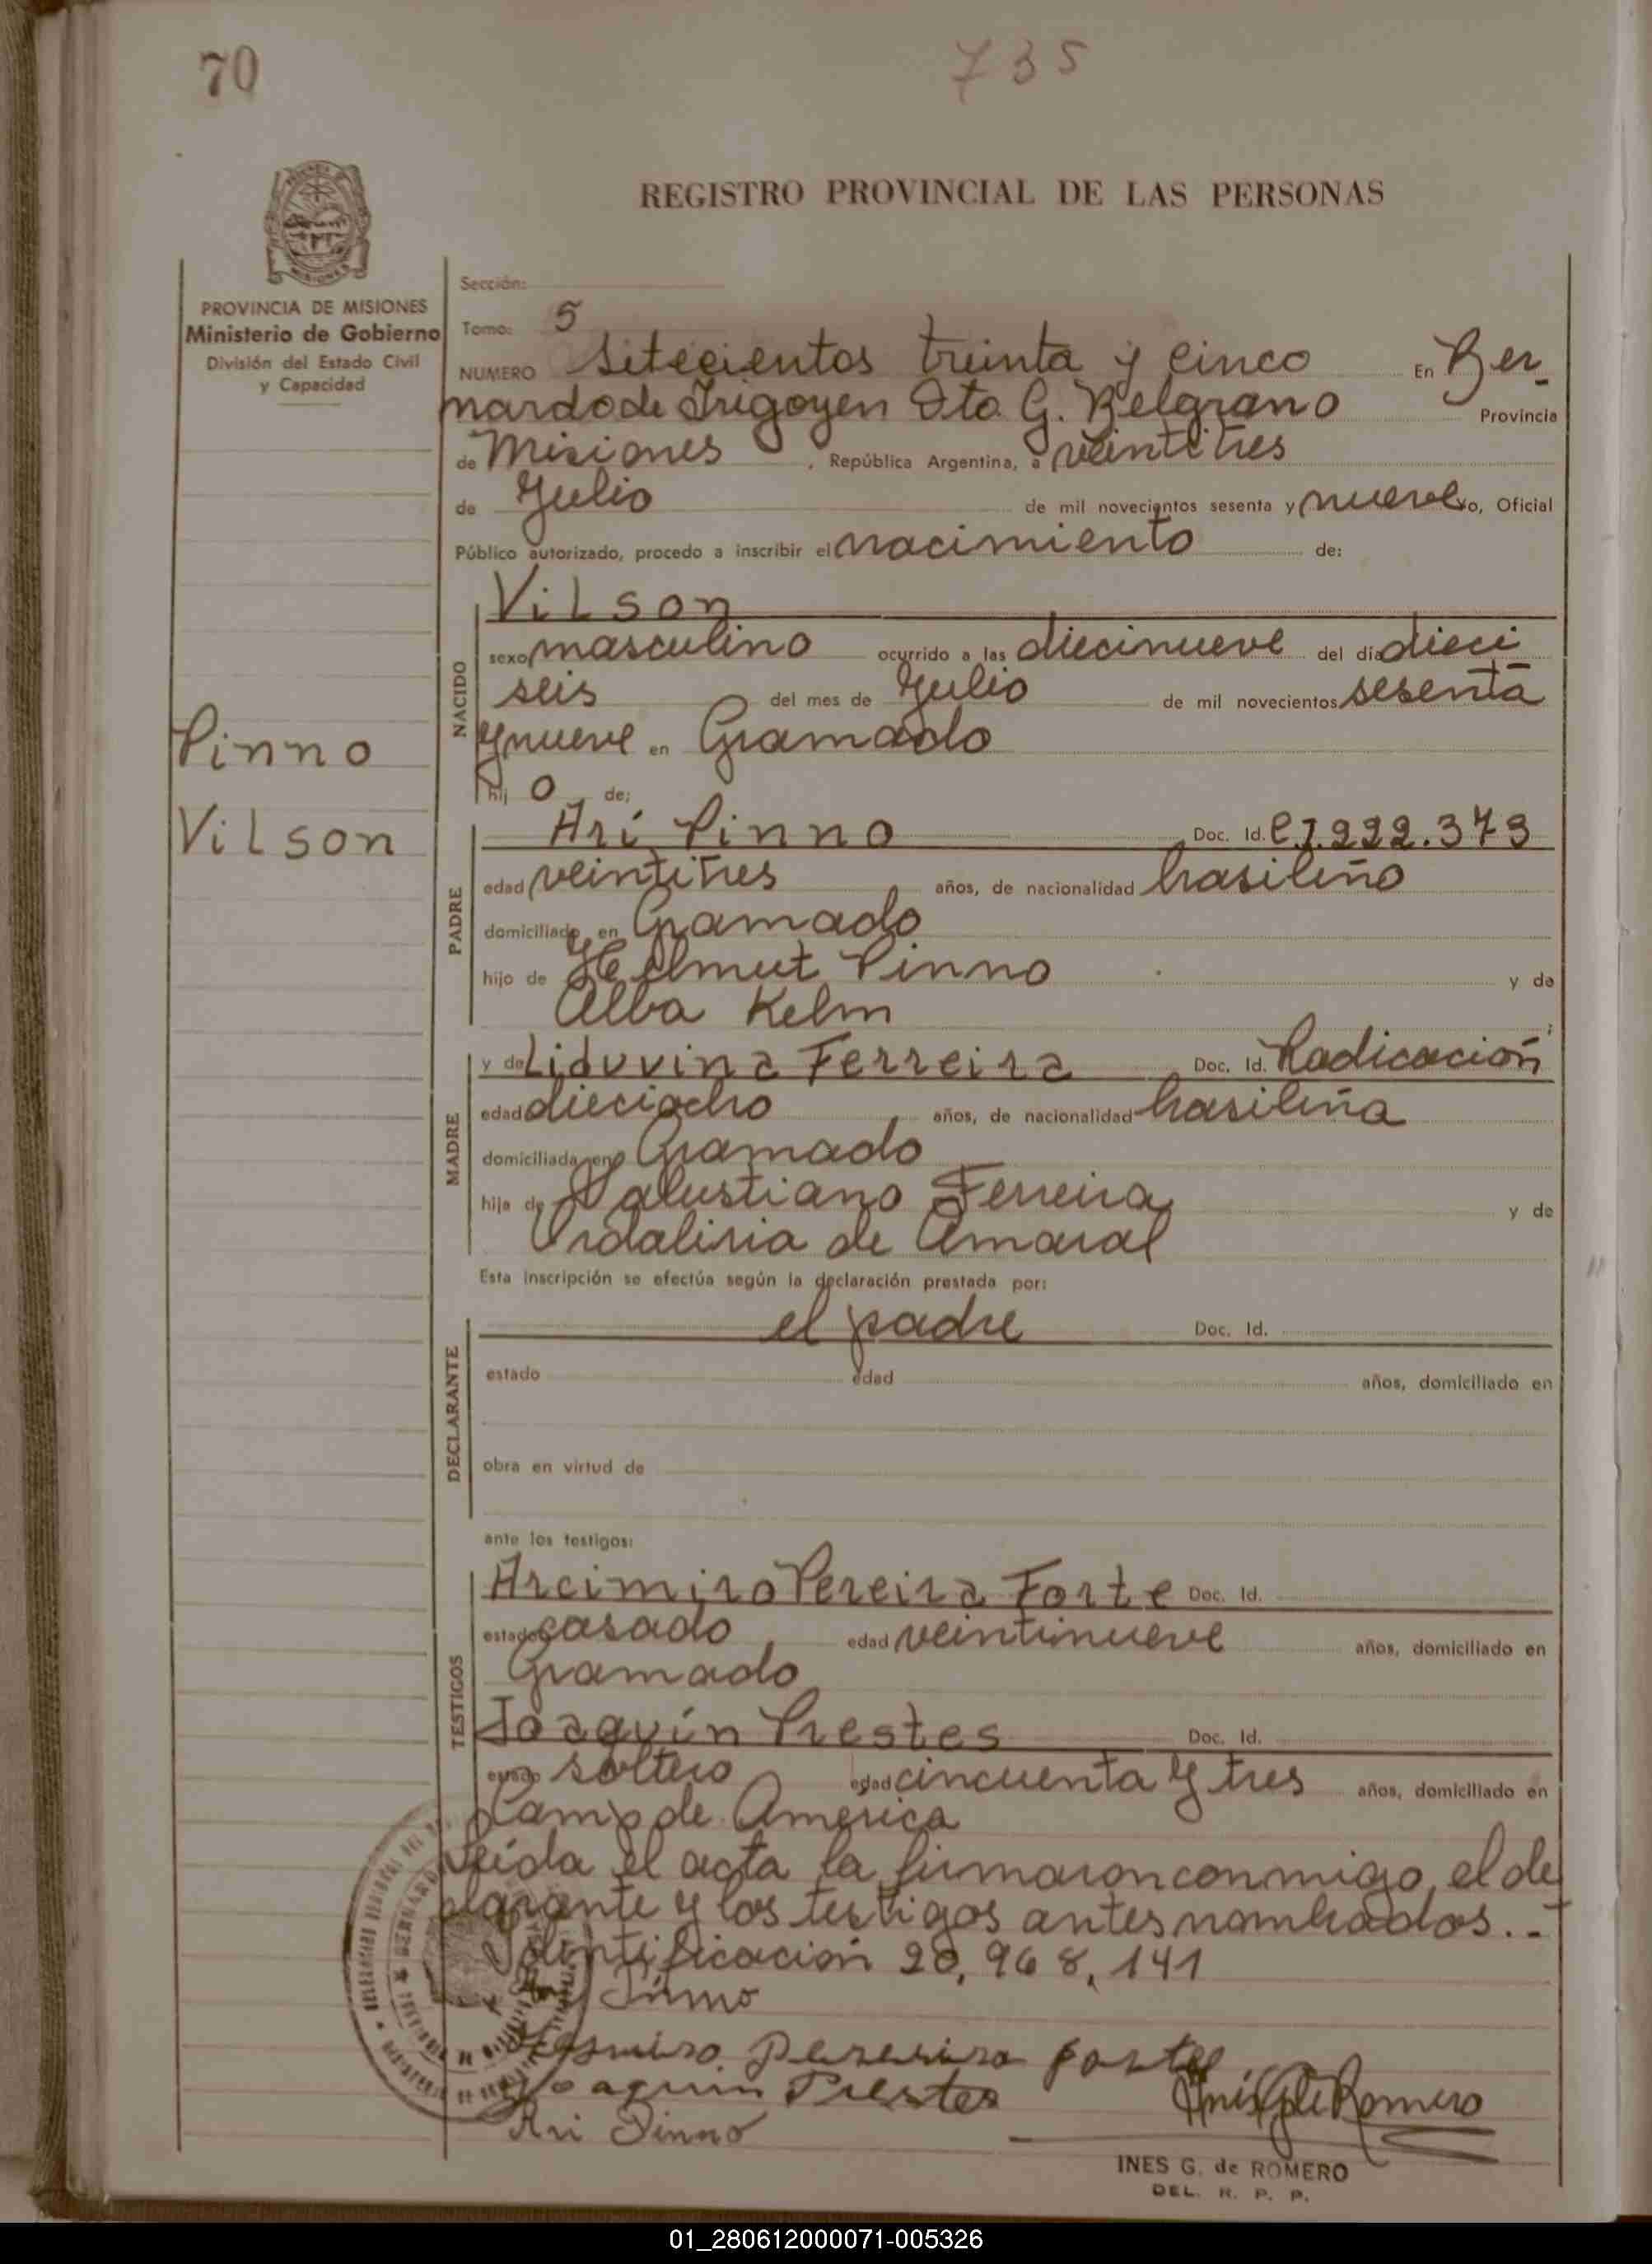 70
735
REGISTRO PROVINCIAL DE LAS PERSONAS
PROVINCIA DE MISIONES
Ministerio de Gobierno
División del Estado Civil
y Capacidad
Sección:
Tomo: 5
NUMERO Sitecientos treinta y cinco En Ber-
nardo de Irigoyen Dto G. Belgrano Provincia
de Misiones, República Argentina, a veintitres
de Julio de mil novecientos sesenta y nueve yo, Oficial
Público autorizado, procedo a inscribir el nacimiento de:
Pinno
Vilson
NACIDO
Vilson
sexo masculino ocurrido a las diecinueve del día dieci
seis del mes de Julio de mil novecientos sesenta
y nueve en Gramado
hij o de:
PADRE
Ari Pinno Doc. Id. C1.222.379
edad veintitres años, de nacionalidad brasileño
domiciliado en Gramado
hijo de Hellmut Pinno y de
Alba Kelm
MADRE
y de Liduvina Ferreira Doc. Id. Radicación
edad dieciocho años, de nacionalidad brasileña
domiciliada en Gramado
hija de Salustiano Ferreira y de
de Amaral
Esta inscripción se efectúa según la declaración prestada por:
DECLARANTE
el padre Doc. Id.
estado edad años, domiciliado en
obra en virtud de
ante los testigos:
TESTIGOS
Arcimiro Pereira Forte Doc. Id.
estado casado edad veintinueve años, domiciliado en
Gramado
Joaquín Prestes Doc. Id.
estado soltero edad cincuenta y tres años, domiciliado en
Camp de America
Leída el acta la firmaron conmigo, el de
clarante y los testigos antes nombrados..-
Identificación 20,968,141
Pinno
Pereira Forte
Joaquin Prestes
Ari Pinno
INES G. de ROMERO
DEL. R. P. P.
01_280612000071-005326